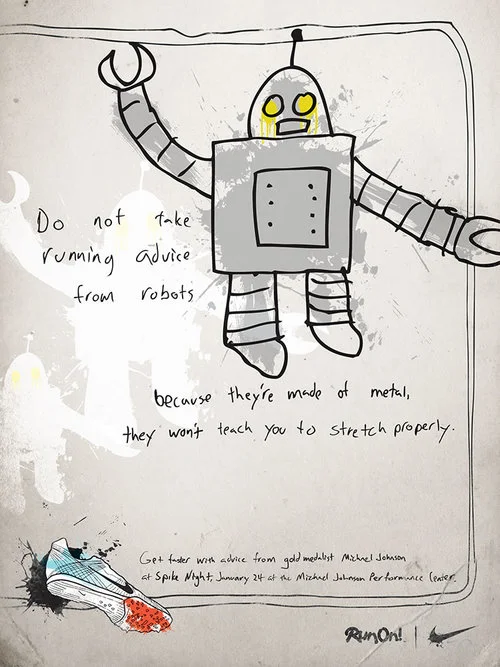 Do not take
running advice
from robots
because they're made of metal,
they won't teach you to stretch properly.
Get faster with advice from gold medalist Michael Johnson
at Spike Night, January 24 at the Michael Johnson Performance Center.
RunOn!